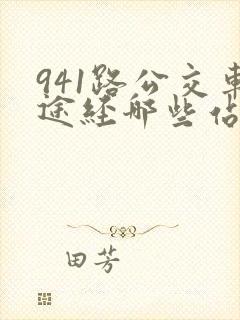 941路公交车
途经哪些站
田芳